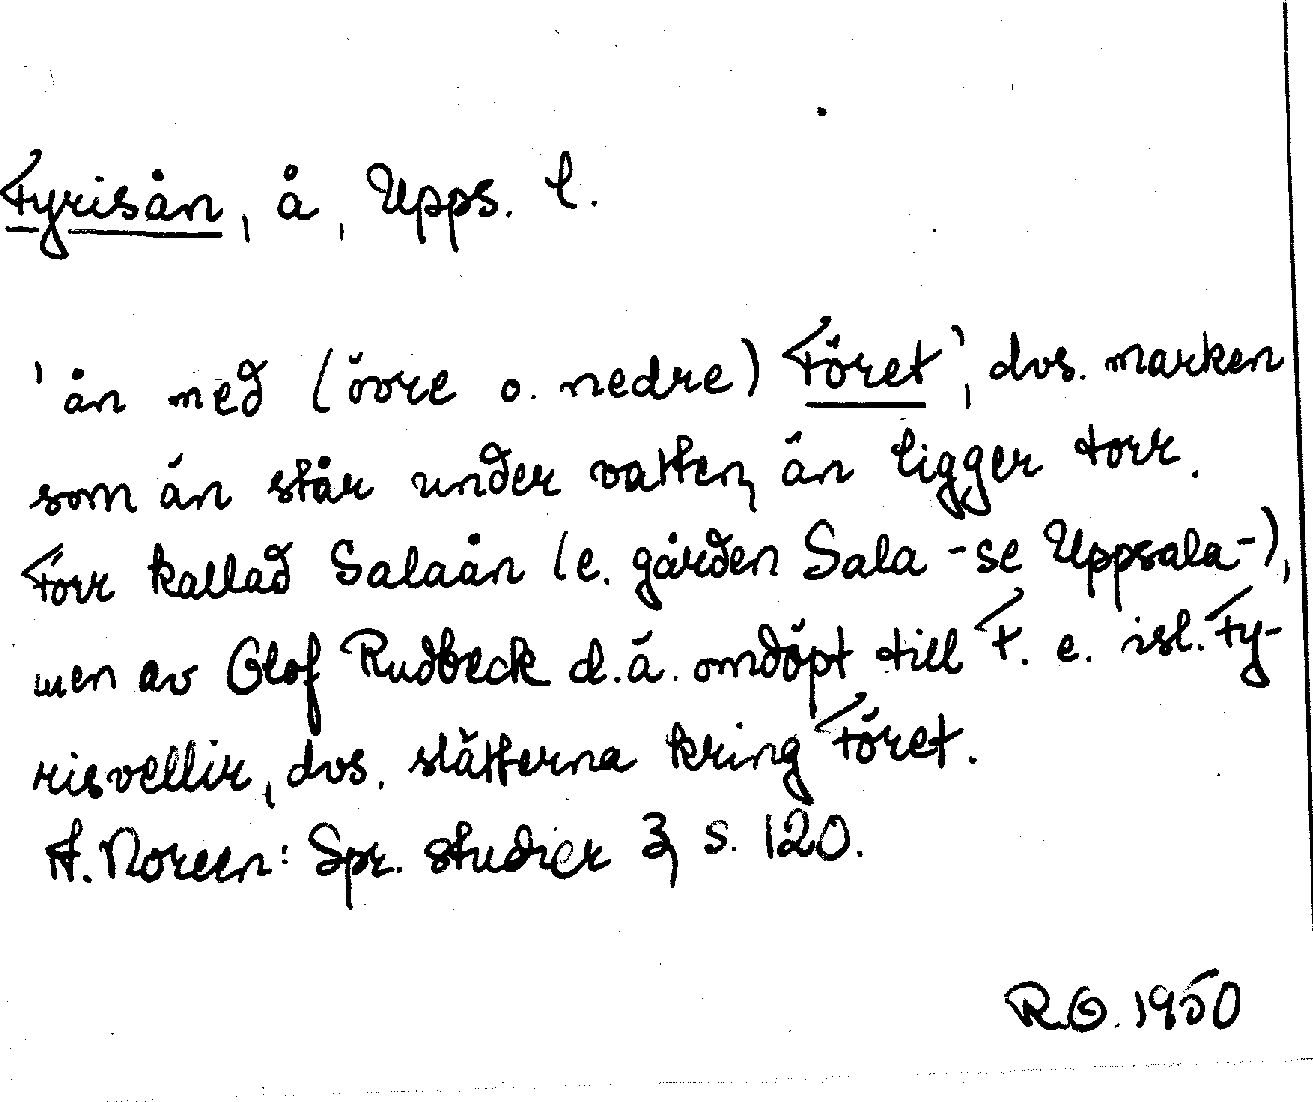 Fyrisån, å, Upps. l.
'ån med (övre o. nedre) Föret', dvs. marken
som än står under vatten, än ligger torr.
Förr kallad Salaån (e. gården Sala -se Uppsala-),
men av Olof Rudbeck d.ä. omdöpt till F. e. isl. Fy-
risvellir, dvs. slätterna kring Föret.
A. Noreen: Spr. studier 3, s. 120.
R.O. 1950